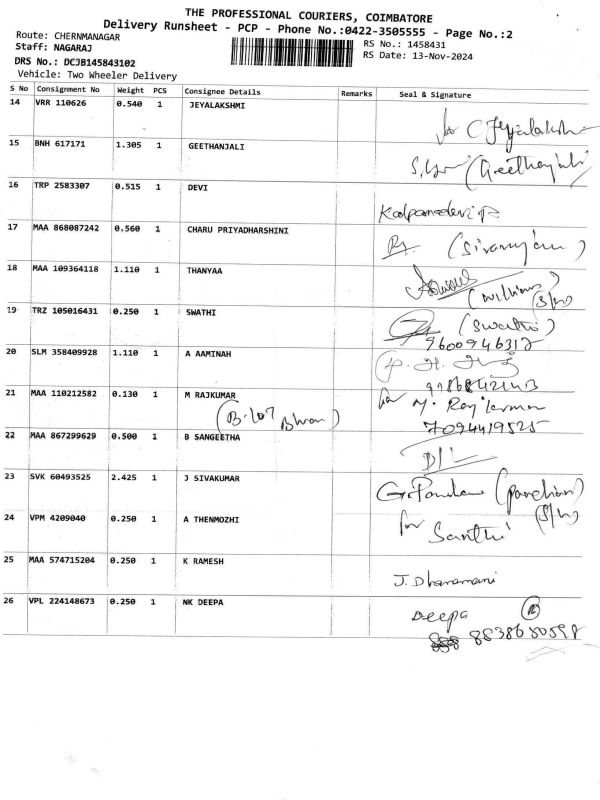 THE PROFESSIONAL COURIERS, COIMBATORE
Delivery Runsheet - PCP - Phone No.:0422-3505555 - Page No.:2
Route: CHERNMANAGAR
RS No.: 1458431
Staff: NAGARAJ
RS Date: 13-Nov-2024
DRS No.: DCJB145843102
Vehicle: Two Wheeler Delivery
S No Consignment No Weight PCS Consignee Details Remarks Seal & Signature
14 VRR 110626 0.540 1 JEYALAKSHMI
C Jeyalakshmi
15 BNH 617171 1.305 1 GEETHANJALI
(Geethanjali)
16 TRP 2583307 0.515 1 DEVI
Kalpanadevi P
17 MAA 868087242 0.560 1 CHARU PRIYADHARSHINI
18 MAA 109364118 1.110 1 THANYAA
(william)
(S/w)
19 TRZ 105016431 0.250 1 SWATHI
(Swathi)
9600946312
20 SLM 358409928 1.110 1 A AAMINAH
21 MAA 110212582 0.130 1 M RAJKUMAR
for M. Rajkumar
(B-107
7094419525
22 MAA 867299629 0.500 1 B SANGEETHA
23 SVK 60493525 2.425 1 J SIVAKUMAR
(pandian)
(S/w)
24 VPM 4209040 0.250 1 A THENMOZHI
for Santhi
25 MAA 574715204 0.250 1 K RAMESH
J. Dharamani
26 VPL 224148673 0.250 1 NK DEEPA
Deepa
8838680598